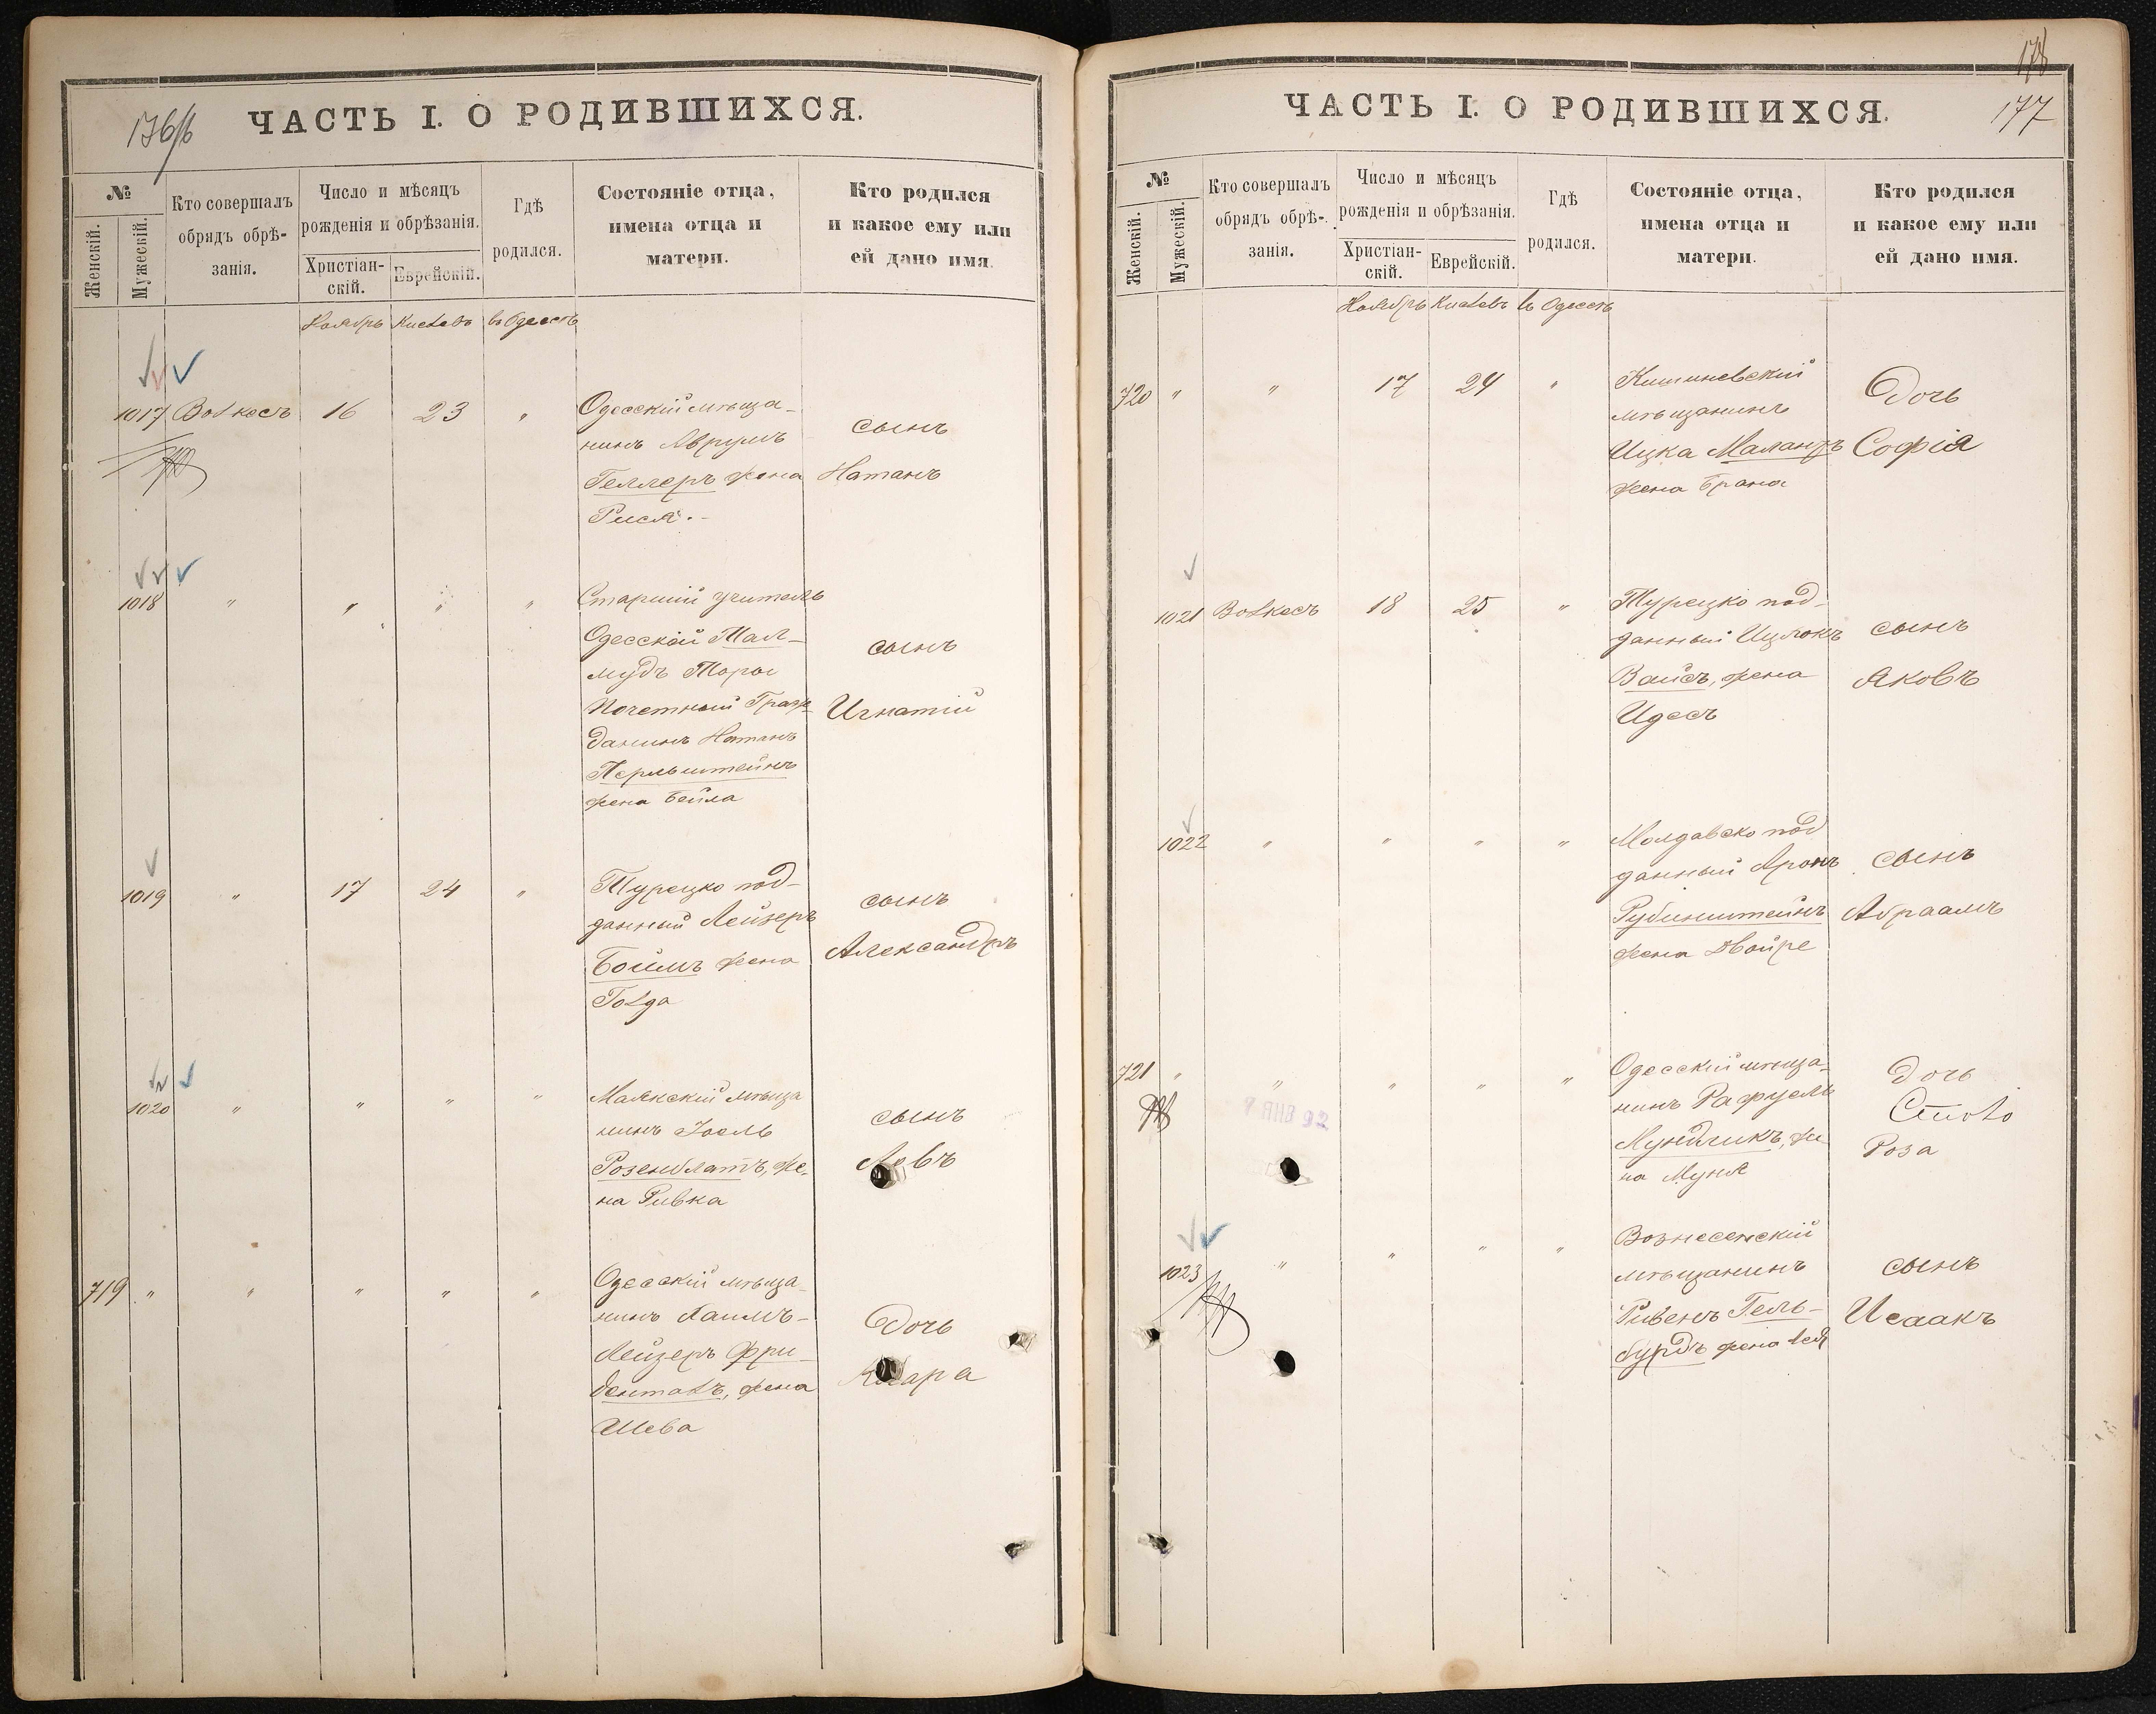 176/б
ЧАСТЬ I. О РОДИВШИХСЯ.
№
Женскій.
Мужескій.
Кто совершалъ
обрядъ обрѣ-
занія.
Число и мѣсяцъ
рожденія и обрѣзанія.
Христіан-
скій.
Еврейскій.
Гдѣ
родился.
Состояніе отца,
имена отца и
матери.
Кто родился
и какое ему или
ей дано имя.
Ноябрь Кислевъ въ Одессѣ
1017 Волкесъ 16 23 "
Одесскій мѣща-
нинъ Аврумъ
Геллеръ жена
Рися.-
сынъ
Натанъ
1018 " " " "
Старшій учитель
Одесской Тал-
мудъ Торы
Почетный Граж-
данинъ Натанъ
Перльштейнъ
жена Бейла
сынъ
Игнатій
1019 " 17 24 "
Турецко под-
данный Лейзеръ
Боймъ жена
Голда
сынъ
Александръ
1020 " " " "
Маякскій мѣща
нинъ Іоель
Розенблатъ, же-
на Ривка
сынъ
Левъ
719 " " " " "
Одесскій мѣща-
нинъ Хаимъ-
Лейзеръ Фри-
денталъ, жена
Шева
Дочь
Клара
178
177
ЧАСТЬ I. О РОДИВШИХСЯ.
№
Женскій.
Мужескій.
Кто совершалъ
обрядъ обрѣ-
занія.
Число и мѣсяцъ
рожденія и обрѣзанія.
Христіан-
скій.
Еврейскій.
Гдѣ
родился.
Состояніе отца,
имена отца и
матери.
Кто родился
и какое ему или
ей дано имя.
Ноябрь Кислевъ въ Одессѣ
720 " " 17 24 "
Кишиневскій
мѣщанинъ
Ицка
жена Брана
Дочь
Софія
1021 Волкесъ 18 25 "
Турецко под-
данный Ицхокъ
Вайсъ, жена
Идесъ
сынъ
Яковъ
1022 " " " "
Молдавско под
данный Аронъ
Рубинштейнъ
жена Двойре
сынъ
Абраамъ
721 " " " " "
9 ЯНВ 92
Одесскій мѣща-
нинъ Рафуель
Мундликъ, же-
на Муня
дочь
Роза
1023 " " " "
Вознесенскій
мѣщанинъ
Рувенъ Гель-
бурдъ жена Лея
сынъ
Исаакъ